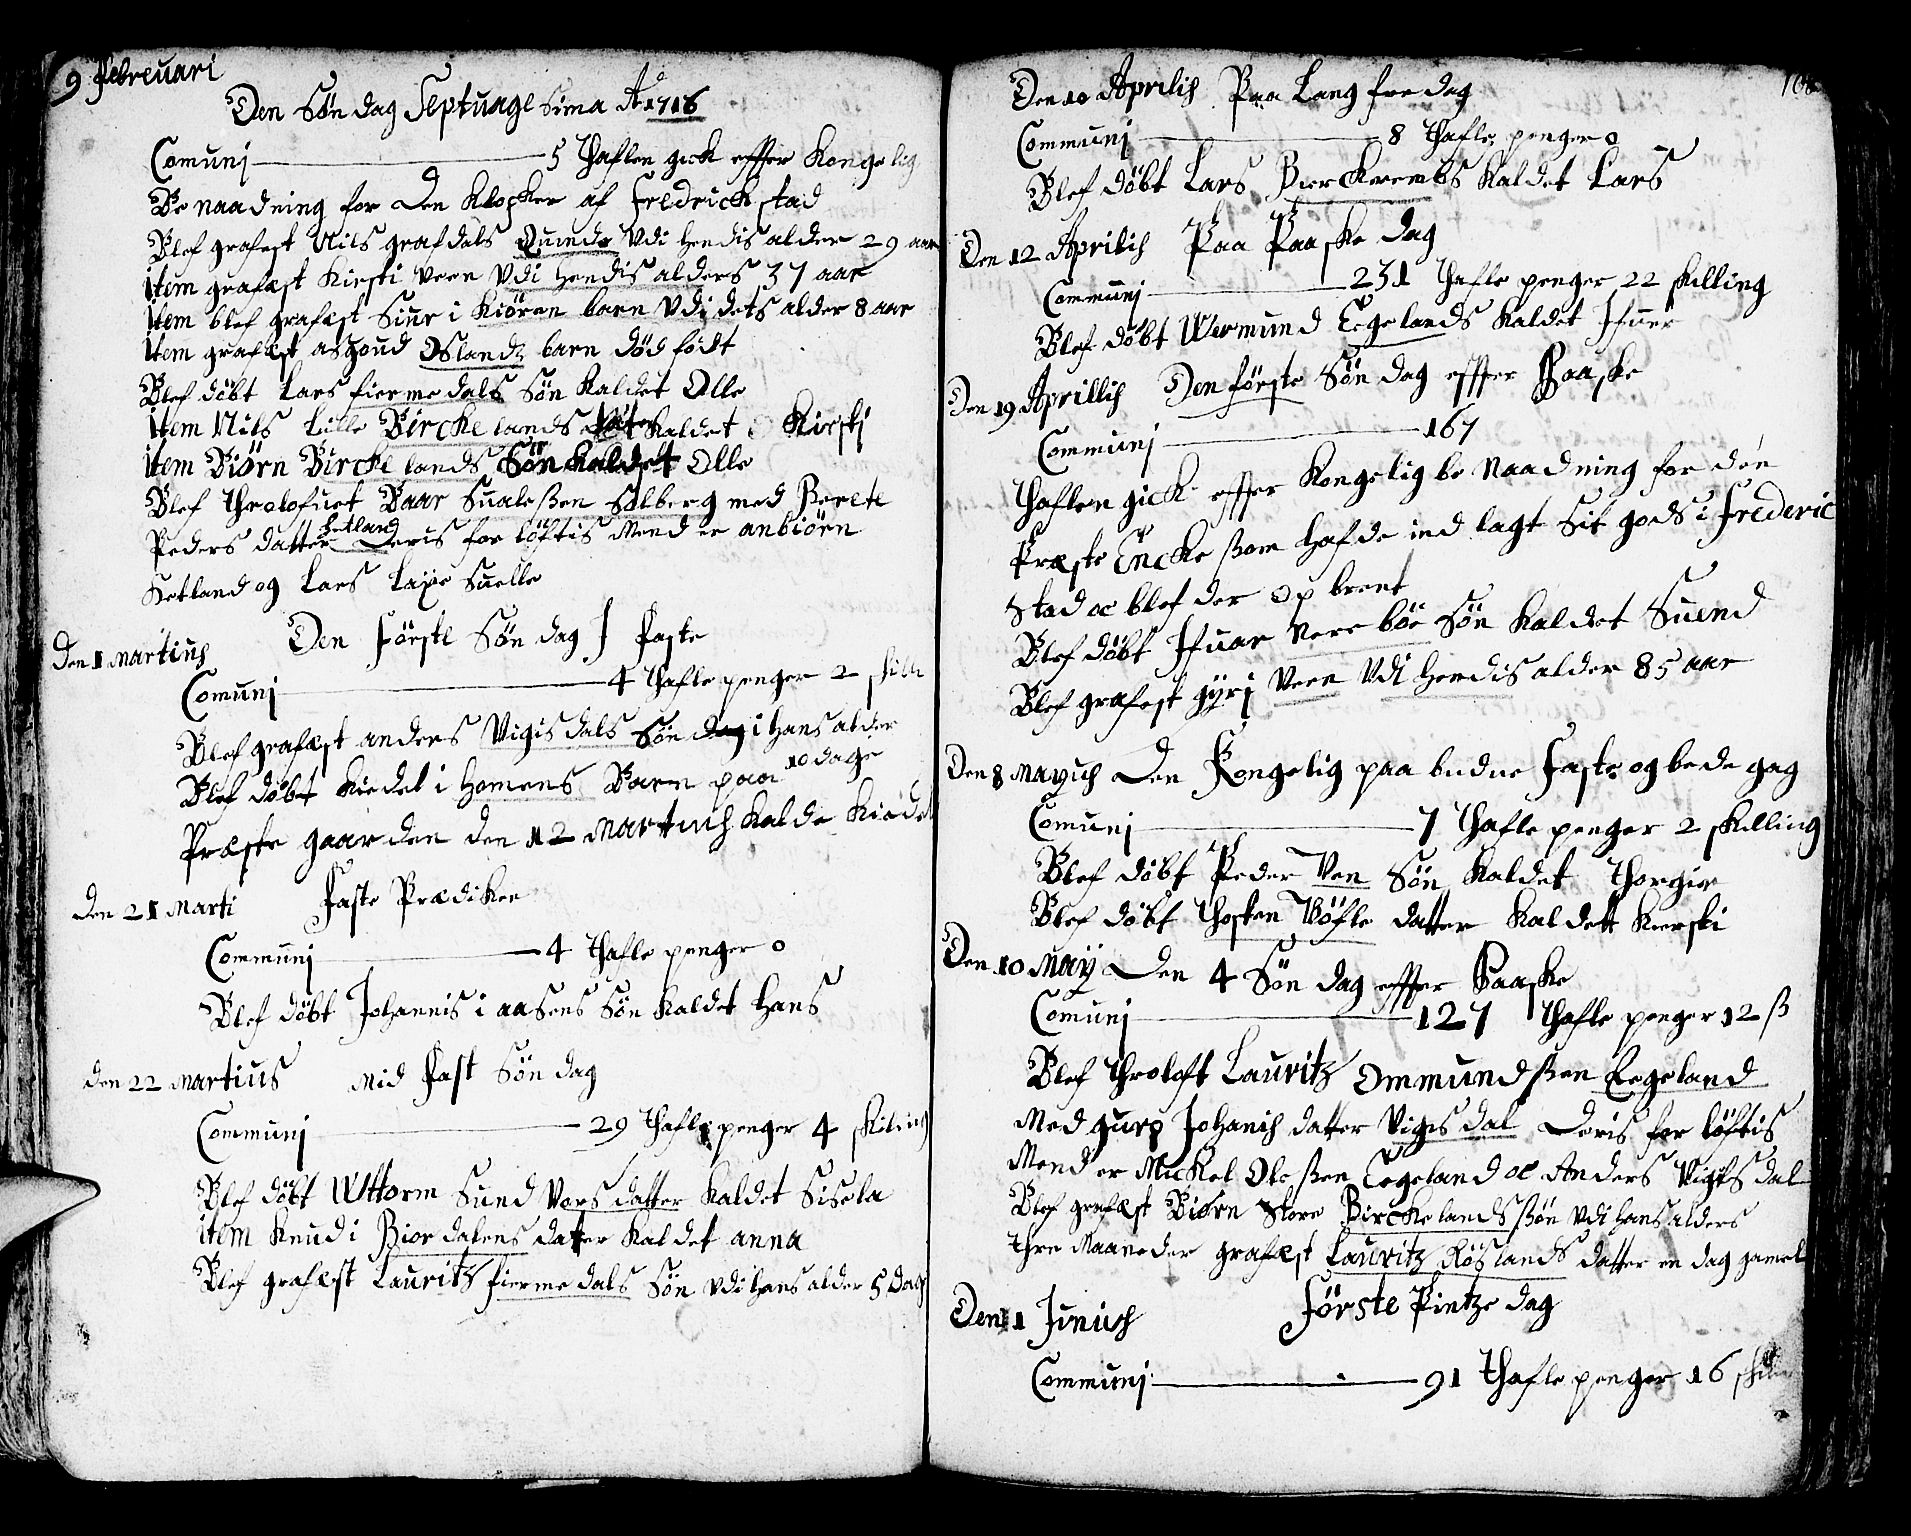 9 Februari
Den Søndag Septuagesima Aº 1716
Comunj 5 Thaflen gick effter Kongelig
Benaadning for den Klocker af Fredrickstad
Blef grafest Nils grafdals Quinde Udi hendis alder 29 aar
item grafæst Kirsti Veen Udi hendis alders 37 aar
Item blef grafæst Siur i Kiören barn Udi dets alder 8 aar
Item grafæst Oslandz barn död födt
Blef döbt Lars fiermedals Sön Kaldet Olle
Item Nils Lille Birckelands Kaldet Kirstj
item Biørn Birckelands Sön Kaldet Olle
Blef Throlofuet Baar Sualessen Solberg med Berete
Peders datter Hetland Deris forlöftis Mend er anbiörn
Hetland og Lars Suelle
Den 1 Martius Den Förste Søndag J Faste
Comunj 4 Thafle penger 2 skill
Blef grafæst anders Vigisdals Sön i hans alder
Blef döbt Kiedel i Homens Barn paa 10 dage
Præste gaarden den 12 Martius Kalde Kiedel
Den 21 Marti Faste Prædiken
Communj 4 Thafle penger 0
Blef döbt Johannis i aasens Sön Kaldet Hans
den 22 Martius Mid Fast Søndag
Communj 29 Thafle penger 4 skiling
Blef döbt Uttorm Sundvors datter Kaldet Sisela
item Knud i Biordalens datter Kaldet anna
Blef grafæst Lauritz fiermedals Sön Udi hans alder 5 Dag
108
Den 10 Aprilis Paa Langfredag
Communj 8 Thafle penger 0
Blef döbt Lars Bierckrembs Kaldet Lars
Den 12 Aprilis Paa Paaske dag
Communj 231 Thafle penger 22 skilling
Blef döbt Wermund Eegelands Kaldet Ifuer
Den 19 Aprillis Den förste Søndag effter Paaske
Communj 167
Thaflen gick effter Kongelig be Naadning for den
Præste Encke ssom hafde ind lagt Sit gods i Frederic
stad oc blef der op brent
Blef döbt Ifuar Nereböe Sön Kaldet Suend
Blef grafest gyri Veen Udi hendis alder 85 aar
Den 8 Mayus Den Kongelig paa budne Faste og bede gag
Comunj 7 Thafle penger 2 skilling
Blef döbt Peder Ven Sön Kaldet Thorgier
Blef döbt Thosten Böfle datter Kaldet Kiersti
Den 10 May Den 4 Søndag effter Paaske
Comunj 127 Thafle penger 12 ß
Blef Throloft Lauritz Ommundssen Eegeland
Med gurj Johanis datter Vigisdal Deris for löftis
Mend er Mickel Olessen Eegeland oc Anders Vigisdal
Blef grafæst Biørn Store Birckelands ssön Udi hans alders
Thre Maaneder grafæst Lauritz Röslands datter en dag gamel
Den 1 Junius Förste Pintze dag
Communj 91 Thafle penger 16 skilin